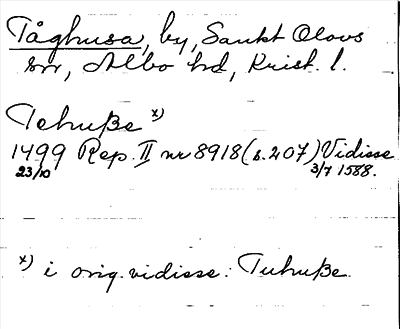 Tåghusa, by, Sankt Olovs
sn, Albo hd, Krist. l.
Tehuße x)
1499 Rep. II nr 8918 (s. 207) Vidisse
23/10 3/7 1588.
x) i orig. vidisse: Tuhuße.